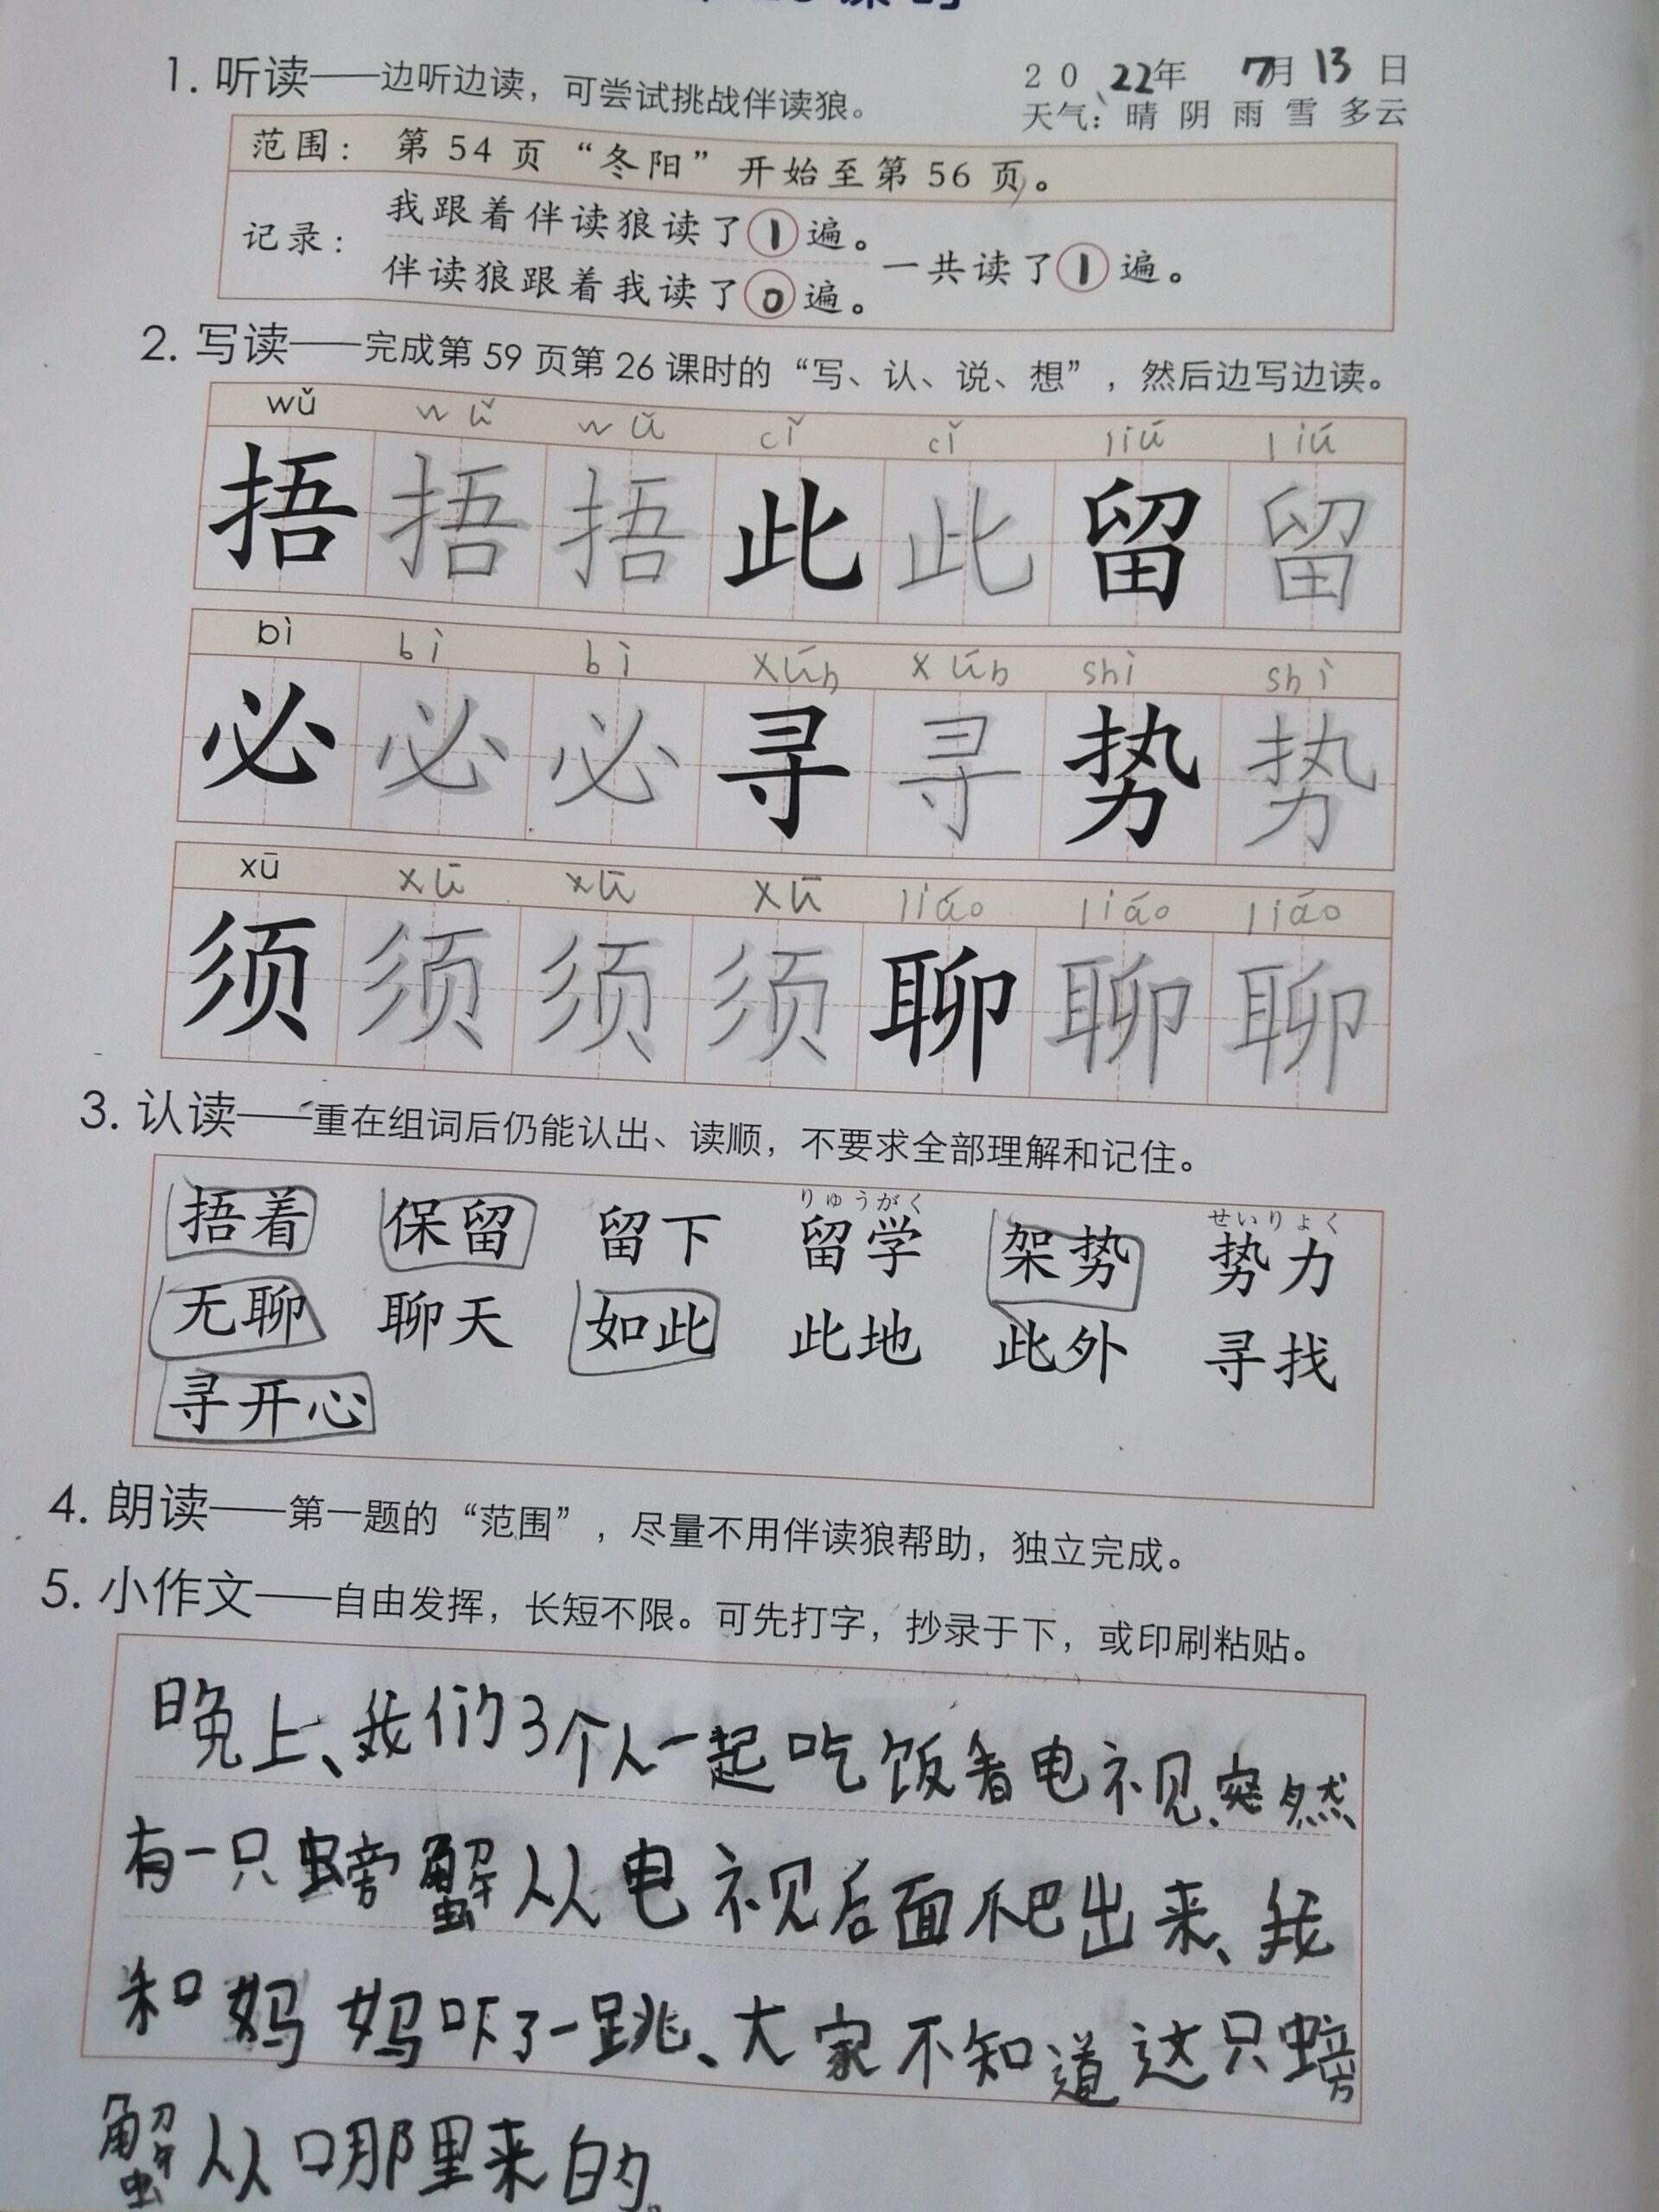 1. 听读——边听边读，可尝试挑战伴读狼。
2022年 7月13日
天气：晴 阴 雨 雪 多云
范围： 第 54 页 “冬阳” 开始至第 56 页。
记录：
我跟着伴读狼读了1遍。
伴读狼跟着我读了0遍。
一共读了1遍。
2. 写读——完成第 59 页第 26 课时的“写、认、说、想”，然后边写边读。
wǔ wǔ wǔ cǐ cǐ liú liú
捂 捂 捂 此 此 留 留
bì bì bì xún xún shì shì
必 必 必 寻 寻 势 势
xū xū xū xū liáo liáo liáo
须 须 须 须 聊 聊 聊
3. 认读——重在组词后仍能认出、读顺，不要求全部理解和记住。
りゅうがく せいりょく
捂着 保留 留下 留学 架势 势力
无聊 聊天 如此 此地 此外 寻找
寻开心
4. 朗读——第一题的“范围”，尽量不用伴读狼帮助，独立完成。
5. 小作文——自由发挥，长短不限。可先打字，抄录于下，或印刷粘贴。
晚上、我们3个人一起吃饭看电视、突然、
有一只螃蟹从电视后面爬出来、我
和妈妈吓了一跳、大家不知道这只螃
蟹从哪里来的。